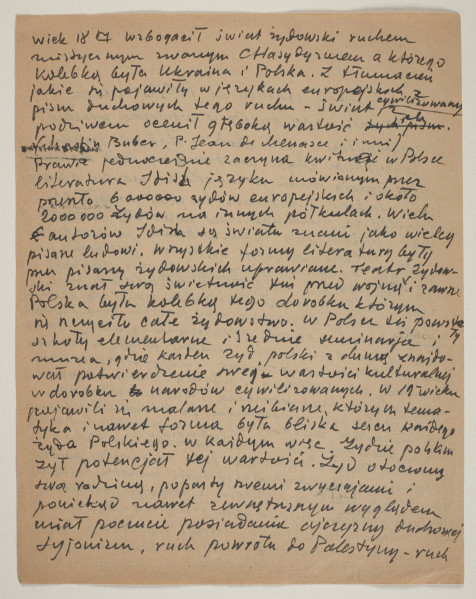 wiek 18 ty wzbogacił świat żydowski ruchem
mistycznym zwanym Chasydyzmem a którego
kolebką była Ukraina i Polska. Z tłumaczeń
jakie się pojawiły w językach europejskich z
pism duchowych tego ruchu - świat cywilizowany
podziwem ocenił głęboką wartość
Buber, P. Jean de Menasce i inni
Prawie jednocześnie zaczyna kwitnąć w Polsce
literatura Idisz języku mówionym przez
6000000 żydów europejskich i około
2000000 Żydów na innych półkulach. Wielu
autorów Idisz są światu znani jako wielcy
pisarze ludowi. Wszystkie formy literatury były
przez pisarzy żydowskich uprawiane. Teatr żydow-
ski znał swą świetność tuż przed wojną i zawsze
Polska była kolebką tego dorobku którym
się szczyciło całe żydostwo. W Polsce też powstały
szkoły elementarne i średnie seminarja i
muzea, gdzie każden żyd polski z dumą znajdo-
wał potwierdzenie swego wartości kulturalnej
w dorobku narodów cywilizowanych. W 19 wieku
pojawili się malarze i rzeźbiarze, których tema-
tyka i nawet forma była bliska sercu każdego
żyda Polskiego. W każdym więc Żydzie polskim
żył potencjał tej wartości. Żyd otoczony
swą rodziną, poparty swemi zwyczajami i
poniekąd nawet zewnętrznym wyglądem
miał poczucie posiadania ojczyzny duchowej
syjonizm, ruch powrotu do Palestyny - ruch